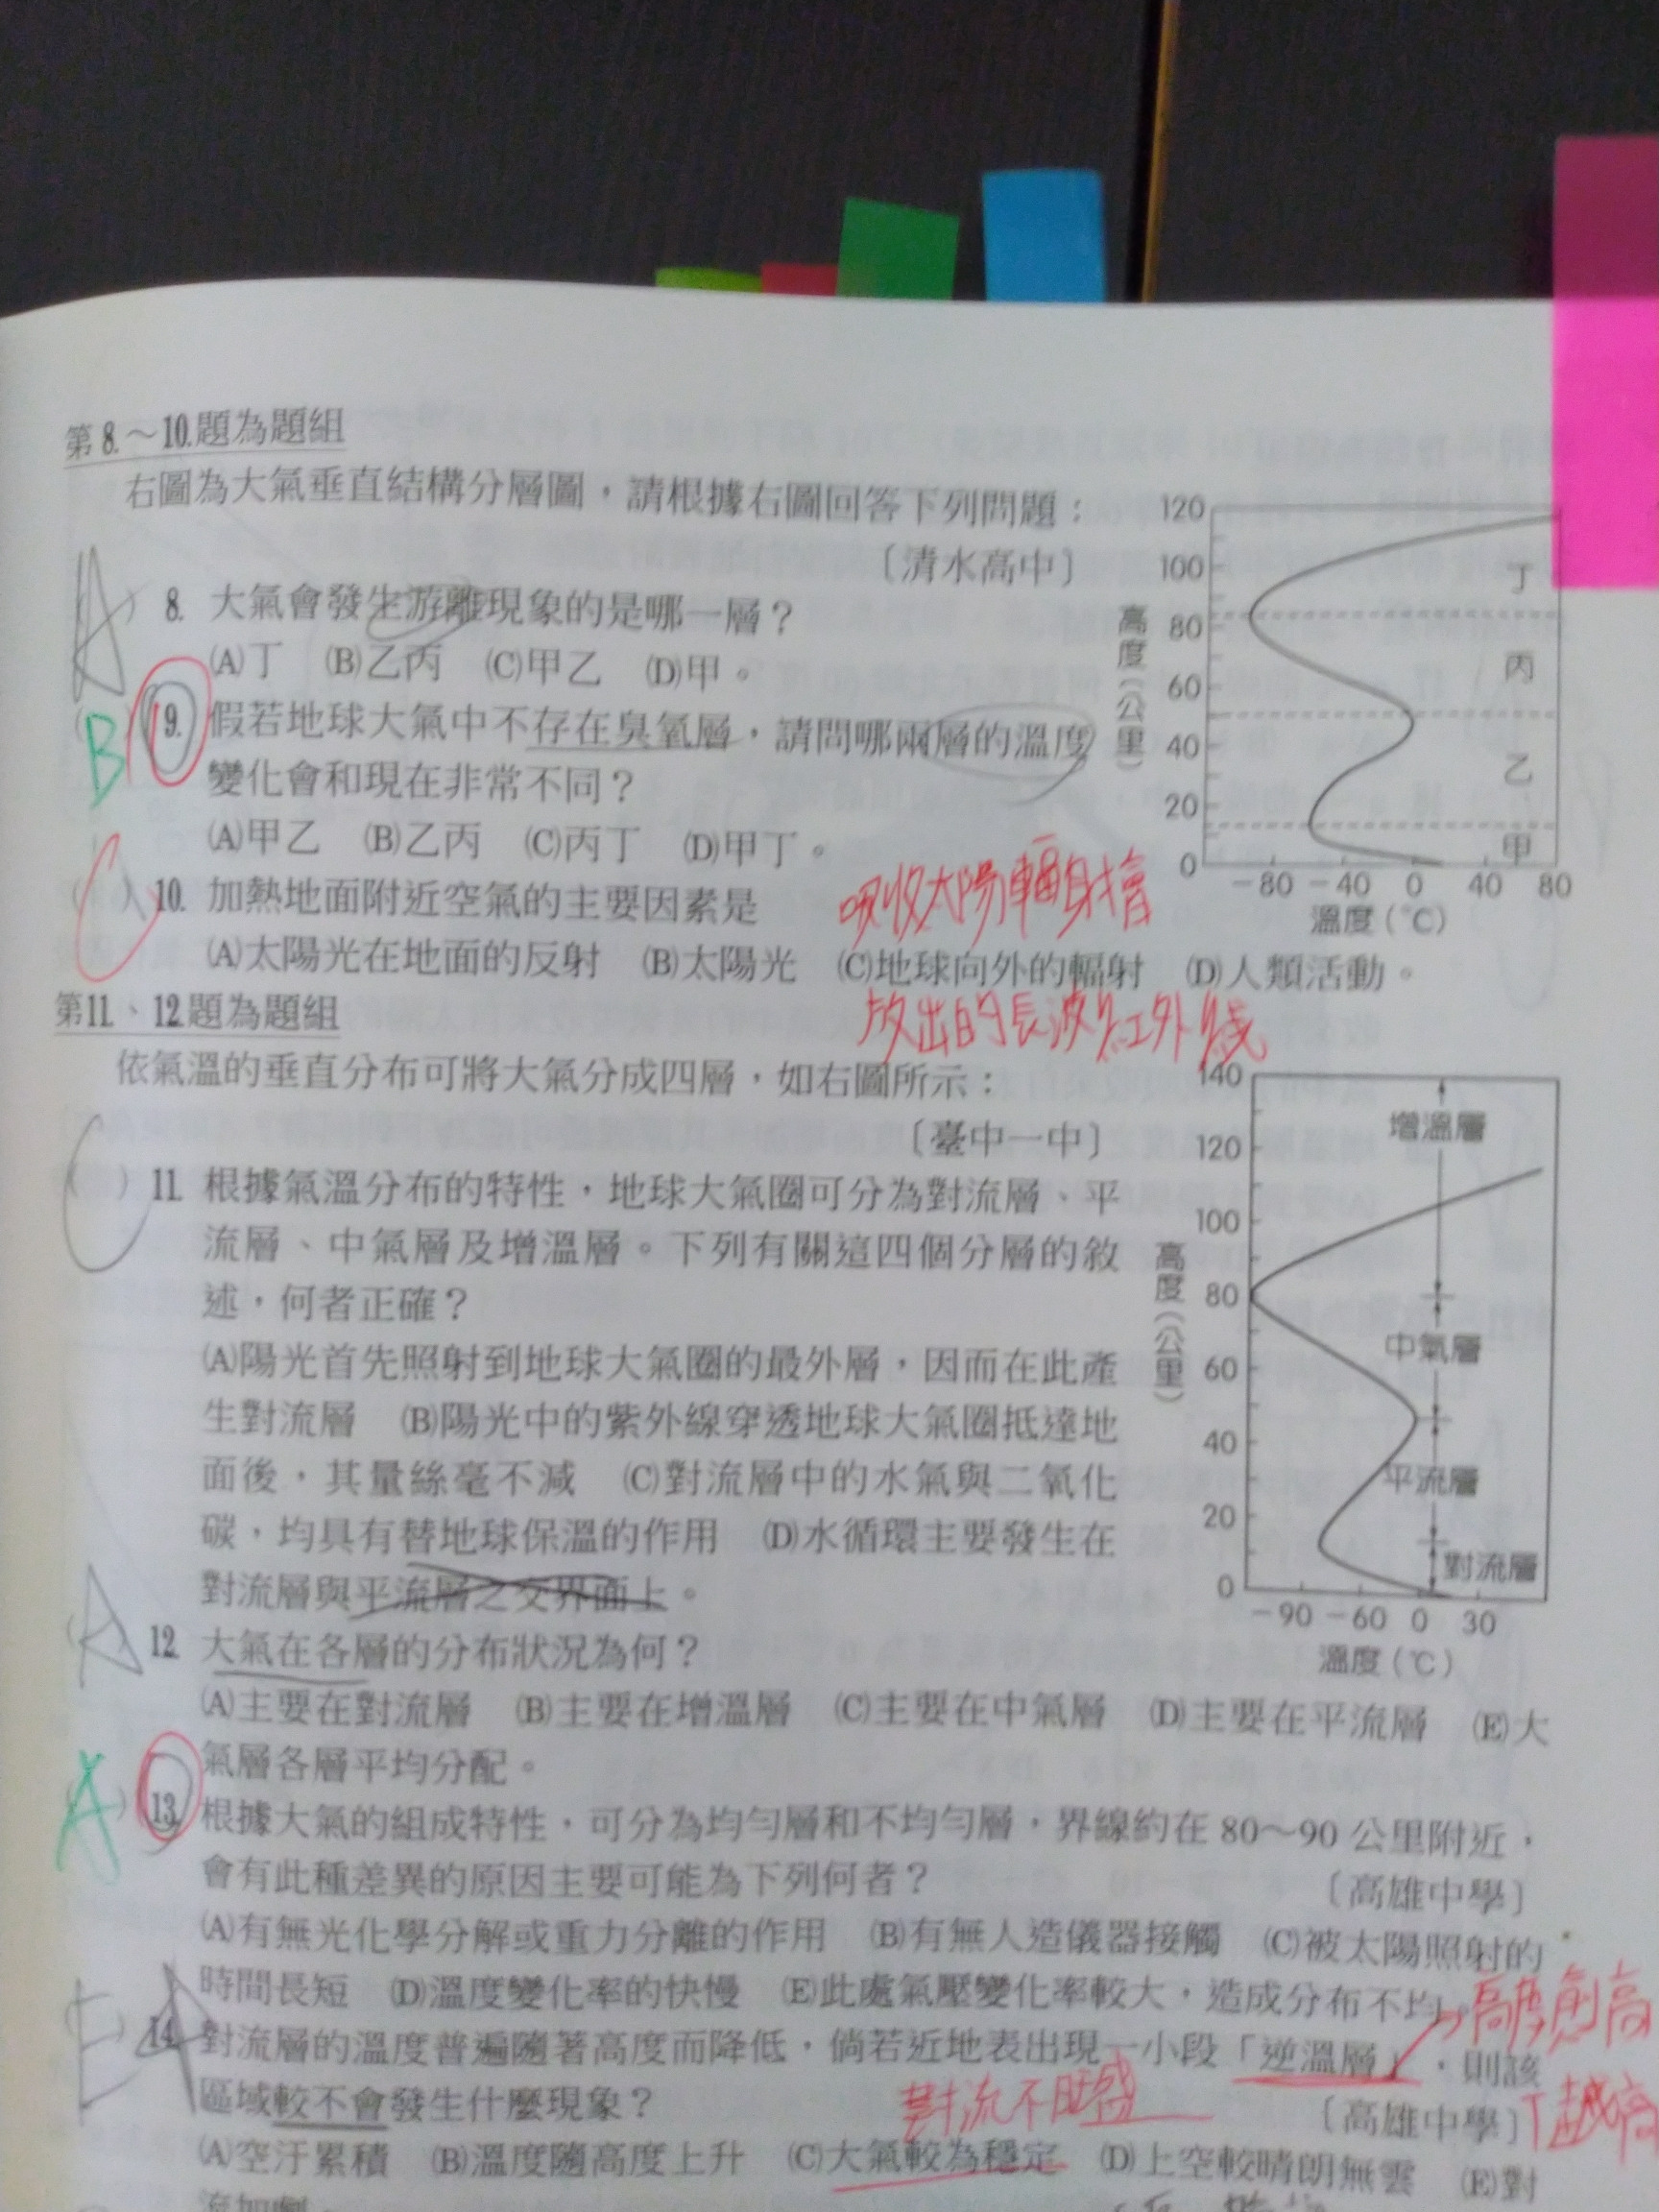 第8.～10.題為題組
右圖為大氣垂直結構分層圖，請根據右圖回答下列問題：
〔清水高中〕
A
8. 大氣會發生游離現象的是哪一層？
(A)丁 (B)乙丙 (C)甲乙 (D)甲。
B
9. 假若地球大氣中不存在臭氧層，請問哪兩層的溫度
變化會和現在非常不同？
(A)甲乙 (B)乙丙 (C)丙丁 (D)甲丁。
120
100
80
60
40
20
0
高度（公里）
丁
丙
乙
甲
-80 -40 0 40 80
溫度(℃)
C
10. 加熱地面附近空氣的主要因素是
吸收太陽輻射後
(A)太陽光在地面的反射 (B)太陽光 (C)地球向外的輻射 (D)人類活動。
放出的長波紅外線
第11.、12.題為題組
依氣溫的垂直分布可將大氣分成四層，如右圖所示：
〔臺中一中〕
C
11. 根據氣溫分布的特性，地球大氣圈可分為對流層、平
流層、中氣層及增溫層。下列有關這四個分層的敘
述，何者正確？
(A)陽光首先照射到地球大氣圈的最外層，因而在此產
生對流層 (B)陽光中的紫外線穿透地球大氣圈抵達地
面後，其量絲毫不減 (C)對流層中的水氣與二氧化
碳，均具有替地球保溫的作用 (D)水循環主要發生在
對流層與平流層之交界面上。
140
120
100
80
60
40
20
0
高度（公里）
增溫層
中氣層
平流層
對流層
-90 -60 0 30
溫度(℃)
A
12. 大氣在各層的分布狀況為何？
(A)主要在對流層 (B)主要在增溫層 (C)主要在中氣層 (D)主要在平流層 (E)大
氣層各層平均分配。
A
13. 根據大氣的組成特性，可分為均勻層和不均勻層，界線約在80～90公里附近，
會有此種差異的原因主要可能為下列何者？
〔高雄中學〕
(A)有無光化學分解或重力分離的作用 (B)有無人造儀器接觸 (C)被太陽照射的
時間長短 (D)溫度變化率的快慢 (E)此處氣壓變化率較大，造成分布不均。
高度愈高
T越高
E
14. 對流層的溫度普遍隨著高度而降低，倘若近地表出現一小段「逆溫層」，則該
區域較不會發生什麼現象？
對流不旺盛
〔高雄中學〕
(A)空汙累積 (B)溫度隨高度上升 (C)大氣較為穩定 (D)上空較晴朗無雲 (E)對